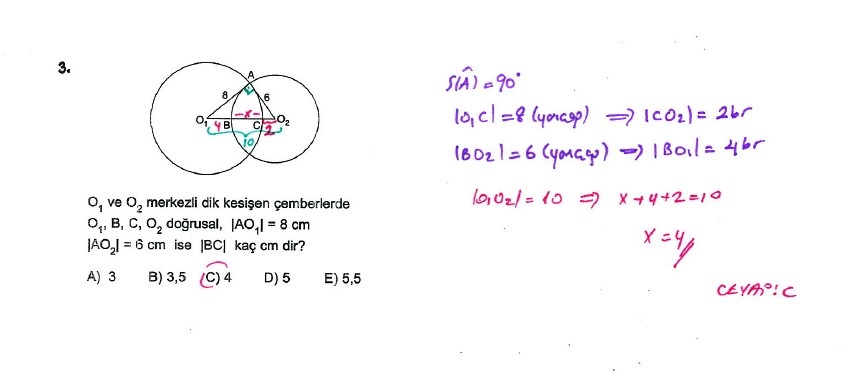 3.
A
8
6
O₁
4
B
-x-
C
2
O₂
10
O₁ ve O₂ merkezli dik kesişen çemberlerde
O₁, B, C, O₂ doğrusal, |AO₁| = 8 cm
|AO₂| = 6 cm ise |BC| kaç cm dir?
A) 3 B) 3,5 (C) 4 D) 5 E) 5,5
S(Â) = 90°
|O₁C| = 8 (yarıçap) ⇒ |CO₂| = 2br
|BO₂| = 6 (yarıçap) ⇒ |BO₁| = 4br
|O₁O₂| = 10 ⇒ x+4+2=10
x=4
CEVAP: C